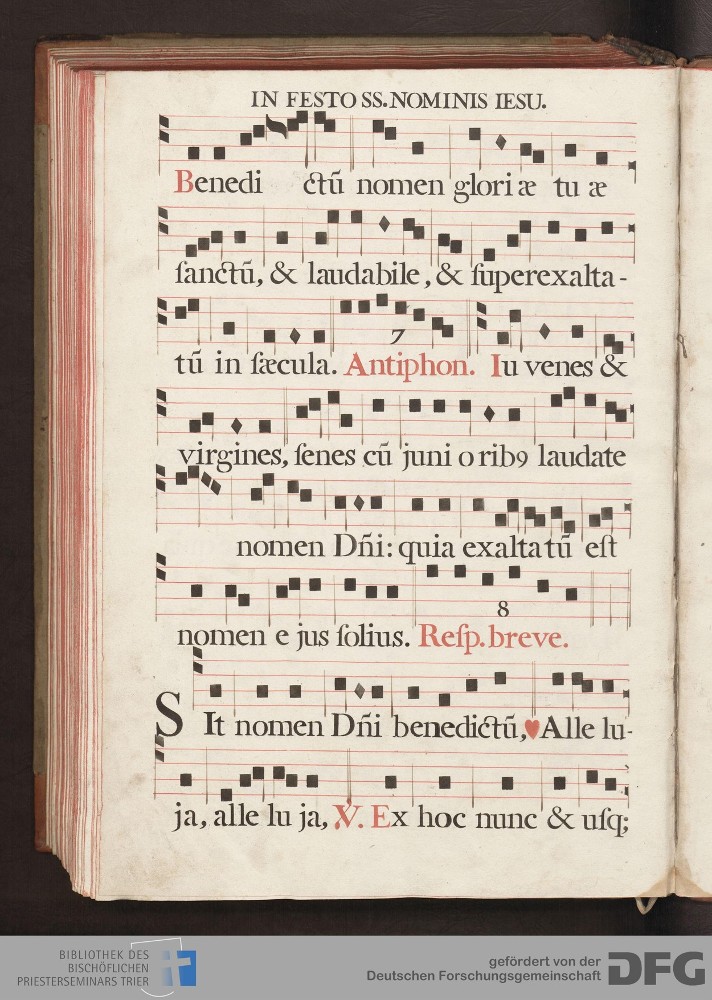 IN FESTO SS. NOMINIS IESU.
Benedictũ nomen gloriæ tuæ
ſanctũ, & laudabile, & ſuperexalta-
tũ in ſæcula. Antiphon. Iuvenes &
7
virgines, ſenes cũ junioribꝰ laudate
nomen Dñi: quia exaltatũ eſt
nomen ejus ſolius. Reſp. breve.
8
SIt nomen Dñi benedictũ, ♥ Allelu-
ja, alleluja, ℣. Ex hoc nunc & uſq;
BIBLIOTHEK DES
BISCHÖFLICHEN
PRIESTERSEMINARS TRIER
gefördert von der
Deutschen Forschungsgemeinschaft
DFG